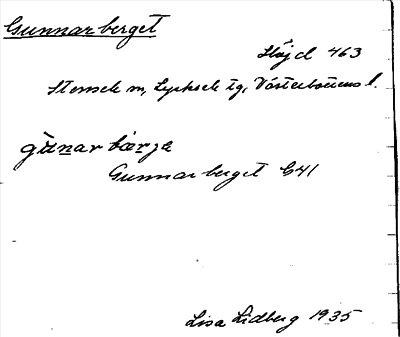 Gunnarberget
Höjd 463
Stensele sn, Lycksele tg, Västerbottens l.
gùnarbæ̀rjə
Gunnarberget G41
Lisa Lidberg 1935